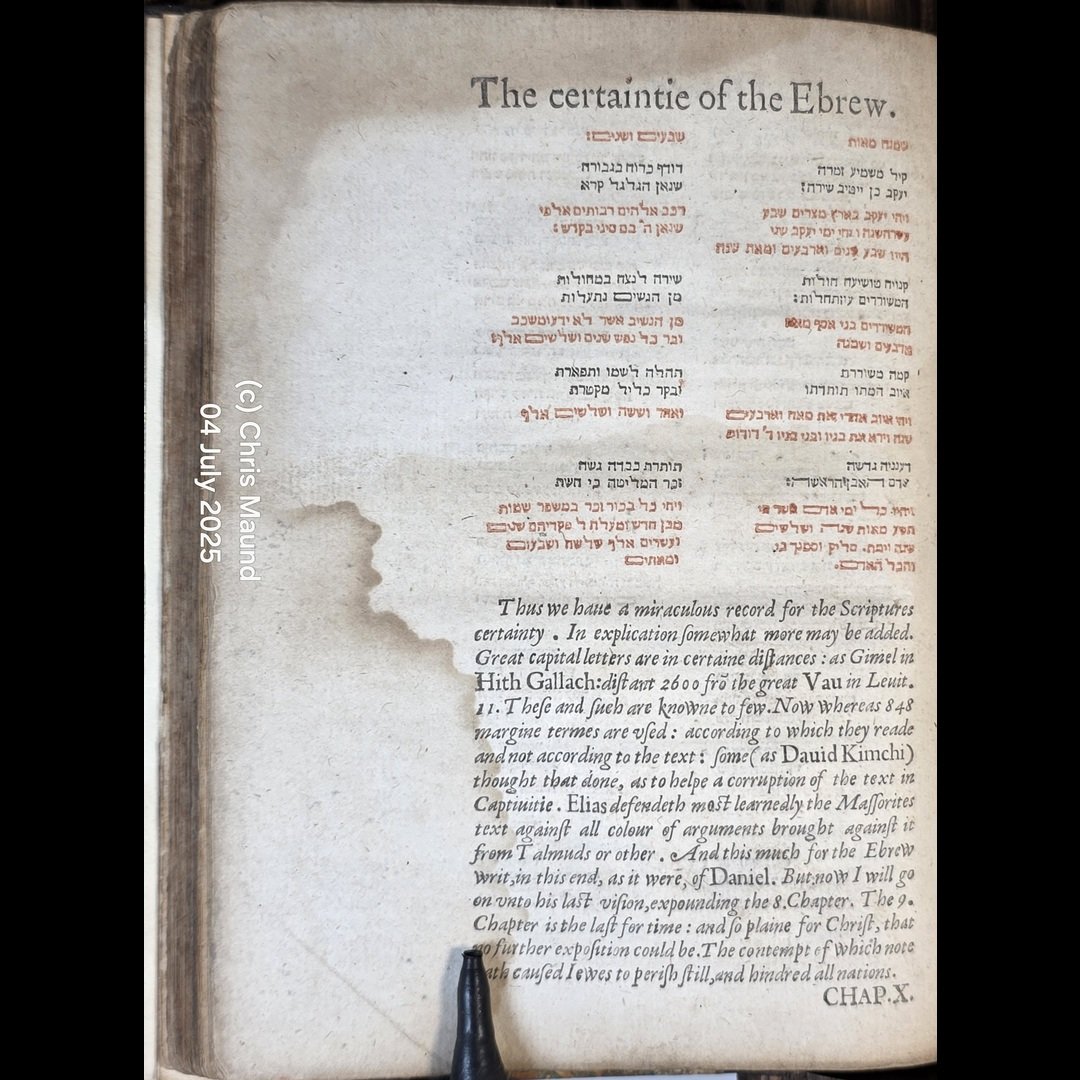 The certaintie of the Ebrew.
שמנה מאות
קיל משמיע זמרה
יעקב כן ייטיב שירה:
ויחי יעקב בארץ מצרים שבע
ויהי ימי יעקב שני
חייו שבע שנים וארבעים ומאת שנה
קנויה מושיעה חולות
המשוררים
המשוררים בני אסף מאה
ארבעים ושמנה
קמה משוררת
איוב המתו תוחדתו
ויחי איוב אחרי זאת מאה וארבעים
שנה וירא את בניו ובני בניו ד׳ דורות
גדשה
אדם
ויהיו כל ימי אדם אשר חי
תשע מאות שנה ושלשים
שנה וימת.
והבל האדם.
שבעים ושנים:
רודף ברוח בגבורה
שנאן הגלגל קרא
רכב אלהים רבותים אלפי
שנאן ה׳ בם סיני בקדש:
שירה לנצח במחולות
מן הנשים נתעלות
מן הנשים אשר לא ידעו משכב
זכר כל נפש שנים ושלשים אלף:
תהלה לשמו ותפארת
ובקר כליל מקטרת
ובקר וששה ושלשים אלף
תותרת כבדה גשה
זכר המליטה כי חשת
ויהי כל בכור זכר במספר שמות
מבן חדש ומעלה ל פקריהם שנים
ועשרים אלף שלשה ושבעים
ומאתים
Thus we haue a miraculous record for the Scriptures
certainty . In explication ſomewhat more may be added.
Great capital letters are in certaine diſtances : as Gimel in
Hith Gallach: diſtant 2600 frō the great Vau in Leuit.
11. Theſe and ſuch are knowne to few. Now whereas 848
margine termes are vſed : according to which they reade
and not according to the text : ſome ( as Dauid Kimchi)
thought that done, as to helpe a corruption of the text in
Captiuitie . Elias defendeth moſt learnedly the Maſſorites
text againſt all colour of arguments brought againſt it
from Talmuds or other . And this much for the Ebrew
writ, in this end, as it were, of Daniel. But now I will go
on vnto his laſt viſion, expounding the 8. Chapter. The 9.
Chapter is the laſt for time : and ſo plaine for Chriſt, that
no further expoſition could be. The contempt of which note
hath cauſed Iewes to periſh ſtill, and hindred all nations.
CHAP. X.
(c) Chris Maund
04 July 2025